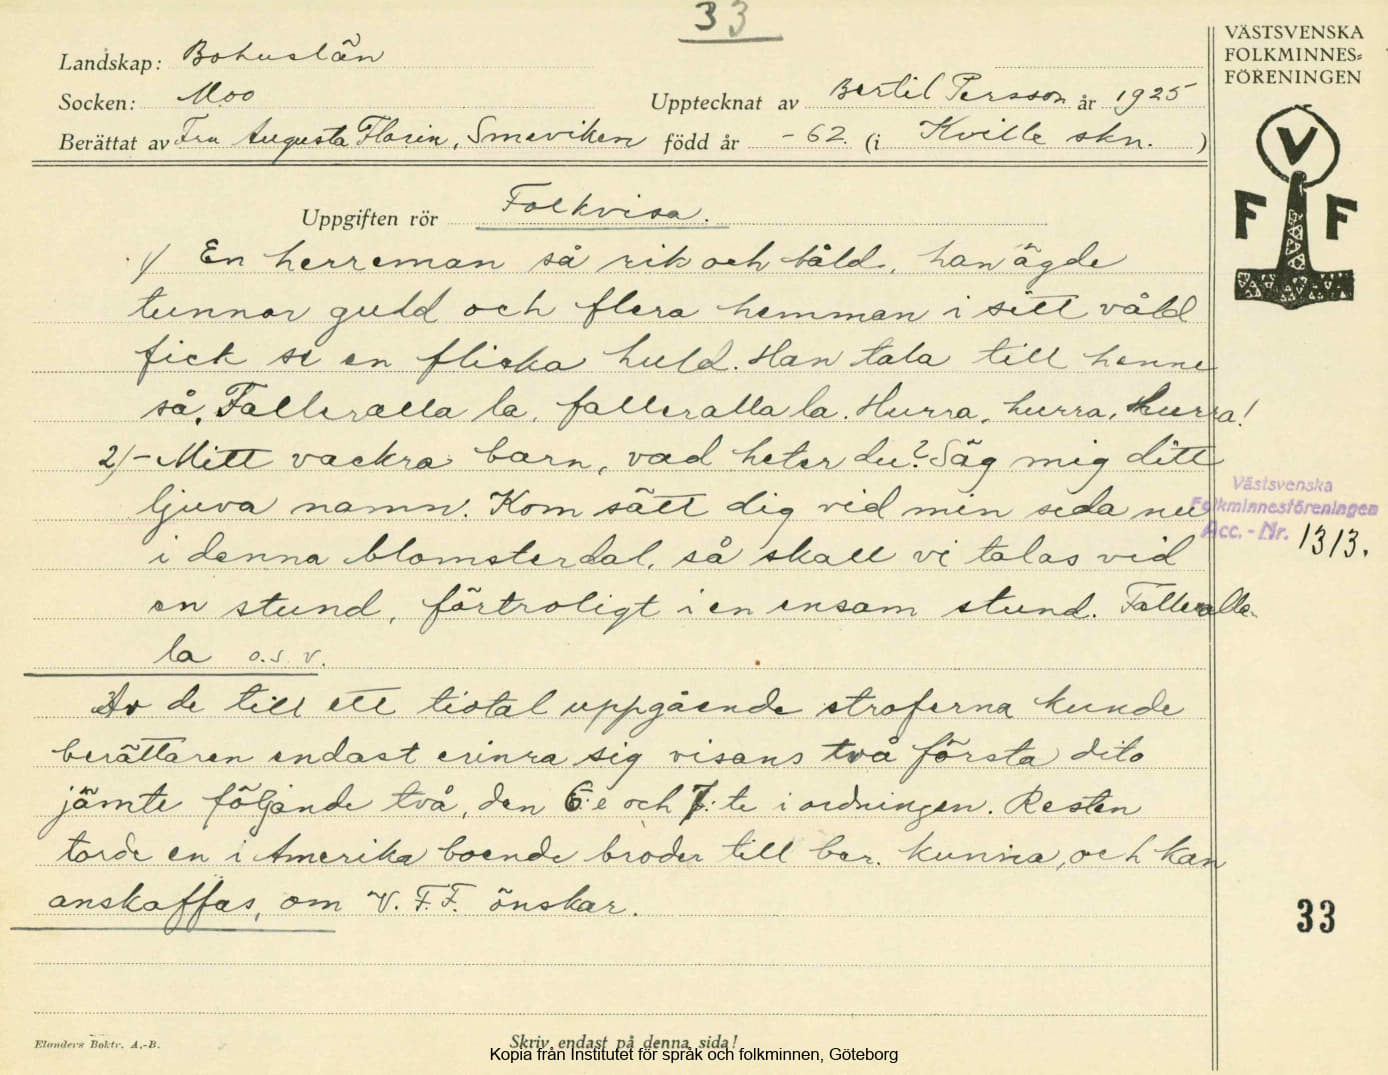 33
Landskap: Bohuslän
Socken: Moo
Upptecknat av Bertil Persson år 1925
Berättat av Fru Augusta Florin, Smeviken född år -62. (i Kville skn. )
VÄSTSVENSKA
FOLKMINNES=
FÖRENINGEN
V
F F
Uppgiften rör Folkvisa.
1) En herreman så rik och båld, han ägde
tunnor guld och flera hemman i sitt våld
fick se en flicka huld. Han tala till henne
så, Falleralla la, falleralla la. Hurra, hurra, hurra!
2) - Mitt vackra barn, vad heter du? Säg mig ditt
ljuva namn. Kom sätt dig vid min sida nu
i denna blomsterdal, så skall vi talas vid
en stund, förtroligt i en ensam stund. Falleralla-
la o.s.v.
Västsvenska
Folkminnesföreningen
Acc.-Nr. 1313.
Av de till ett tiotal uppgående stroferna kunde
berättaren endast erinra sig visans två första dito
jämte följande två, den 6:e och 7:te i ordningen. Resten
torde en i Amerika boende broder till ber. kunna, och kan
anskaffas, om V.F.F. önskar.
33
Elanders Boktr. A.-B.
Skriv endast på denna sida!
Kopia från Institutet för språk och folkminnen, Göteborg